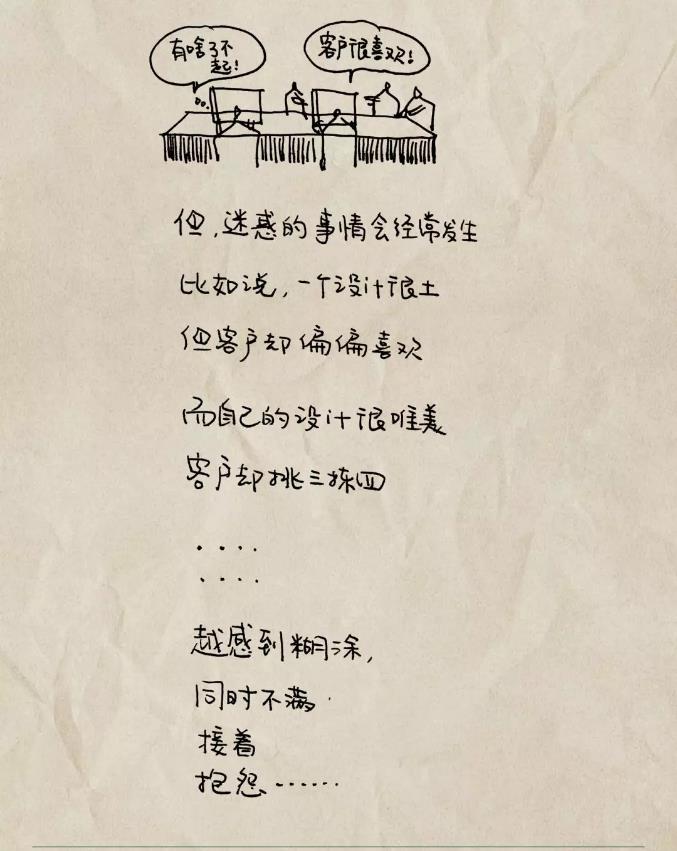 有啥了不
起!
客户很喜欢!
但,迷惑的事情会经常发生
比如说,一个设计很土
但客户却偏偏喜欢
而自己的设计很唯美
客户却挑三拣四
....
....
越感到糊涂,
同时不满.
接着
抱怨......